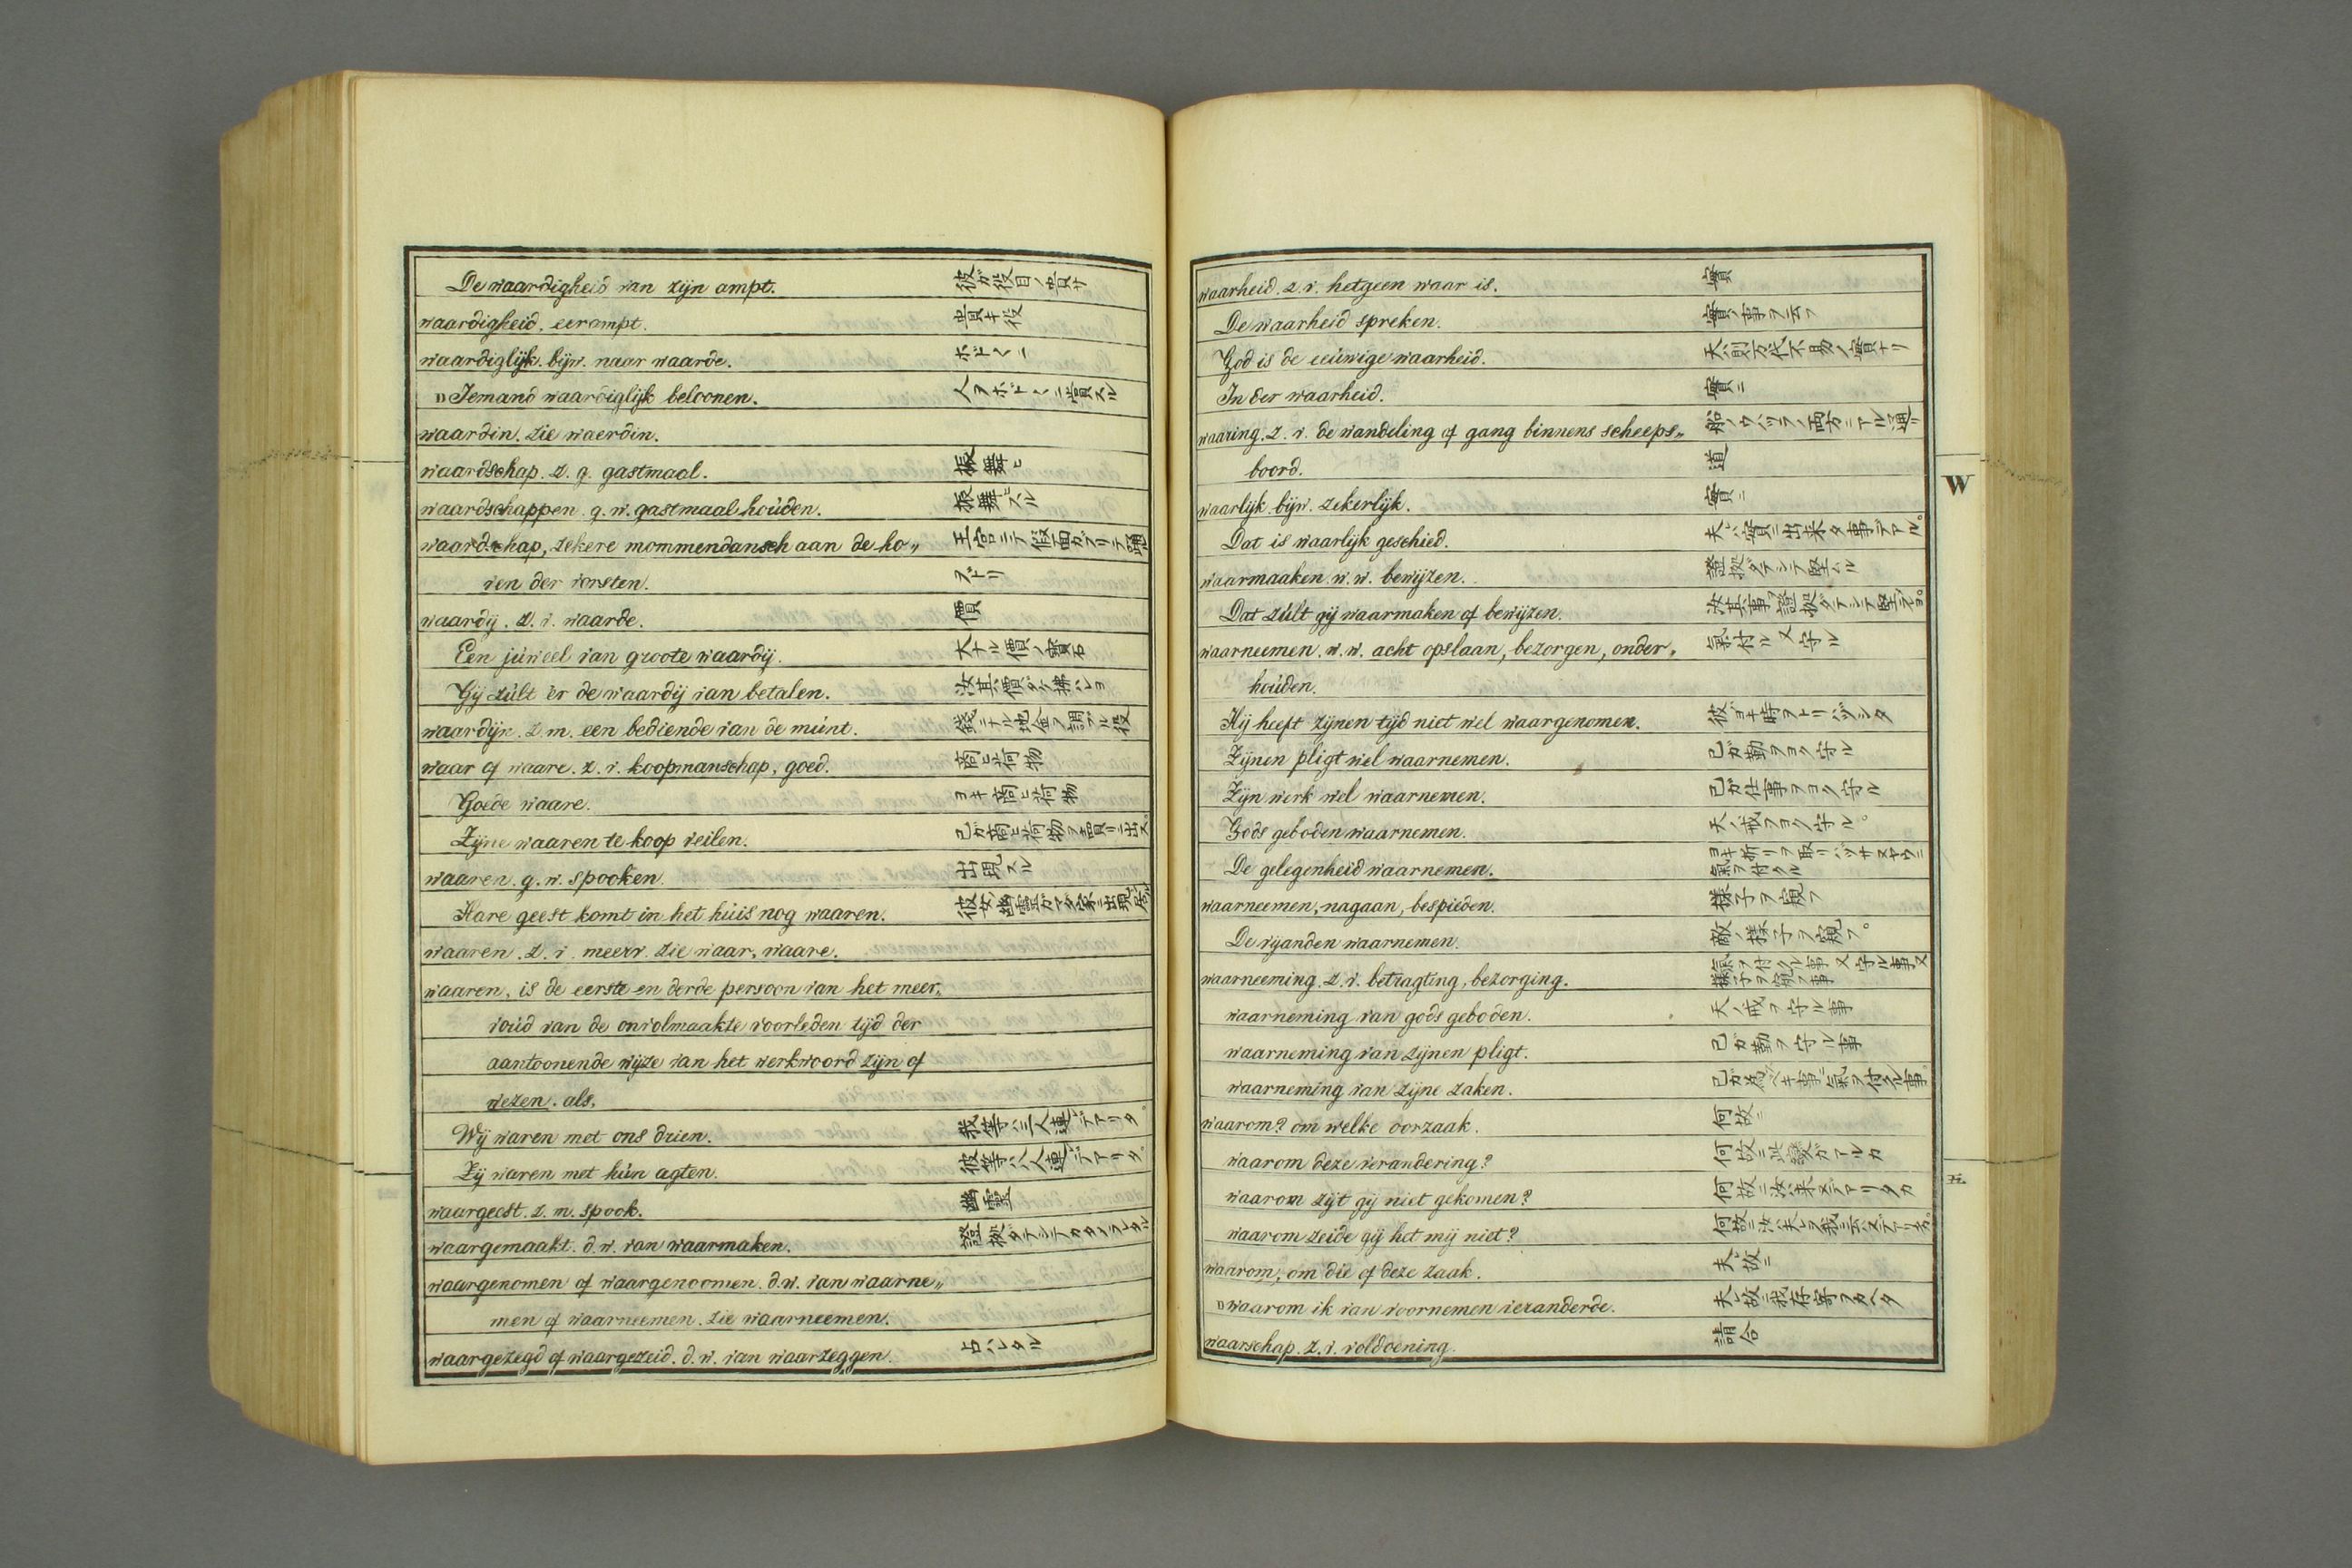 De waardigheid van zijn ampt. 彼ガ役目ノ貴サ
waardigheid, eerampt. 貴キ役
waardiglijk. bijw. naar waarde.
„ Iemand waardiglijk beloonen.
waardin. zie waerdin.
waardschap. z. g. gastmaal. 振舞ヒ
waardschappen. g. w. gastmaal houden. 振舞ヒスル
waardschap, zekere mommendansch aan de ho„ 王宮ニテ假面カブリテ踊
ven der vorsten.
waardij. z. v. waarde. 價
Een juweel van groote waardij. 大ナル價ノ寶石
Gij zult 'er de waardij van betalen.
waardijn. z. m. een bediende van de munt.
waar of waare. z. v. koopmanschap, goed. 商ヒ荷物
Goede waare. ヨキ商ヒ荷物
Zijne waaren te koop veilen. 己ガ商ヒ荷物ヲ賣リニ出ス
waaren. g. w. spooken. 出現スル
Hare geest komt in het huis nog waaren.
waaren. z. v. meerv. zie waar, waare.
waaren, is de eerste en derde persoon van het meer„
voud van de onvolmaakte voorleden tijd der
aantoonende wijze van het werkwoord zijn of
wezen. als.
Wij waren met ons drien. 我等ハ三人連デアリタ
Zij waren met hun agten. 彼等ハ八人連デアリタ
waargeest. z. m. spook. 幽霊
waargemaakt. d. w. van waarmaken.
waargenomen of waargenoomen. d. w. van waarne„
men of waarneemen. zie waarneemen.
waargezegd of waargezeid. d. w. van waarzeggen. 占ハレタル
waarheid. z. v. hetgeen waar is. 實
De waarheid spreken. 實ノ事ヲ云フ
God is de eeuwige waarheid. 天ハ則万代不易ノ實ナリ
In der waarheid. 實ニ
waaring. z. v. de wandeling of gang binnens scheeps„
boord. 道
waarlijk. bijw. zekerlijk. 實ニ
Dat is waarlijk geschied. 夫ハ實ニ出来タ事デアル。
waarmaaken. w. w. bewijzen.
Dat zult gij waarmaken of bewijzen.
waarneemen. w. w. acht opslaan, bezorgen, onder„ 氣付ル又守ル
houden.
Hij heeft zijnen tijd niet wel waargenomen. 彼ハヨキ時ヲトリハヅシタ
Zijnen pligt wel waarnemen. 己ガ勤ヲヨク守ル
Zijn werk wel waarnemen. 己ガ仕事ヲヨク守ル
Gods geboden waarnemen. 天ノ戒ヲヨク守ル。
De gelegenheid waarnemen. ヨキ折リヲ取リハヅサヌヤウニ
氣ヲ付クル
waarneemen, nagaan, bespieden. 様子ヲ窺フ
De vijanden waarnemen. 敵ノ様子ヲ窺フ。
waarneeming. z. v. betragting, bezorging. 氣ヲ付クル事 又守ル事又
様子ヲ窺フ事
waarneming van gods geboden. 天ノ戒ヲ守ル事
waarneming van zijnen pligt. 己ガ勤ヲ守ル事
waarneming van zijne zaken. 己ガ為ベキ事ニ氣ヲ付クル事
waarom? om welke oorzaak. 何故ニ
waarom deze verandering? 何故ニ此變ガアルカ
waarom zijt gij niet gekomen? 何故ニ汝来ズアリタカ
waarom zeide gij het mij niet?
waarom, om die of deze zaak. 夫故ニ
„ waarom ik van voornemen veranderde. 夫故ニ我存寄ヲカヘタ
waarschap. z. v. voldoening. 請合
W